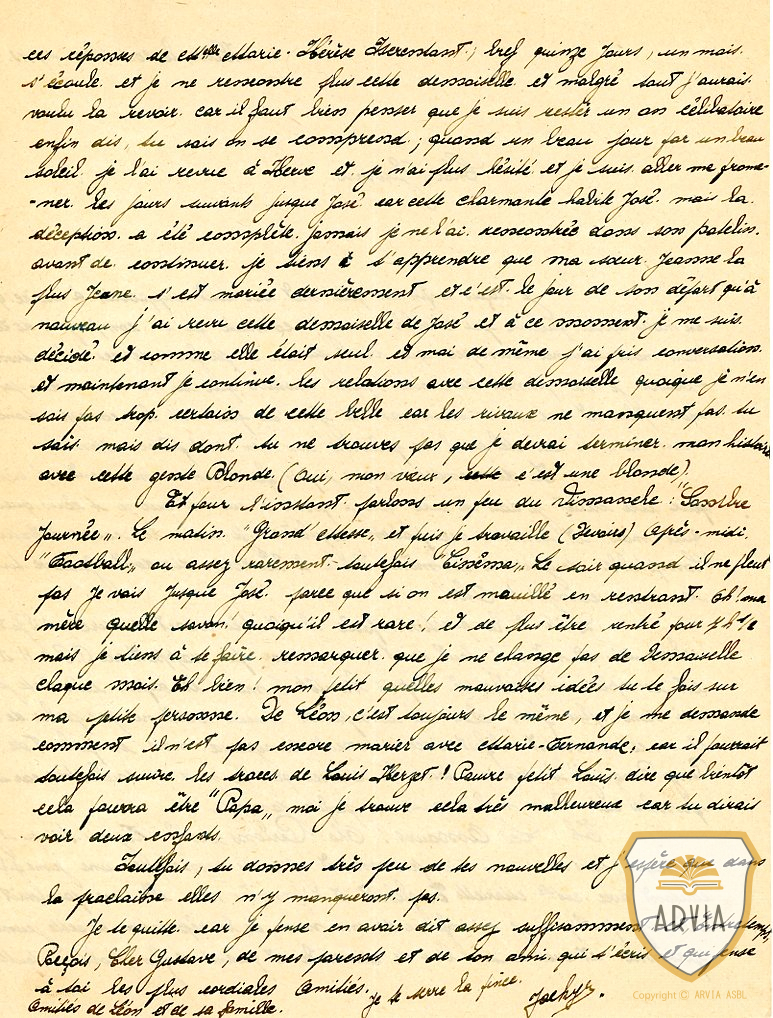 ces réponses de Melle Marie-Thérèse Iserentant; bref quinze jours, un mois.
s'écoule. et je ne rencontre plus cette demoiselle. et malgré tout j'aurais.
voulu la revoir. car il faut bien penser que je suis resté un an célibataire
enfin dis, tu sais on se comprend; quand un beau jour par un beau
soleil. je l'ai revue à Herve et. je n'ai plus hésité et je suis. aller me prome-
-ner. les jours suivants jusque José car cette charmante habite José. mais la
déception. a été complète. jamais je ne l'ai. rencontrée dans son patelin.
avant de. continuer. je tiens à t'apprendre que ma sœur. Jeanne la
plus Jeune. s'est mariée dernièrement et c'est. le jour de son départ qu'à
nouveau j'ai revu cette demoiselle de José et à ce moment. je me suis.
décidé. et comme elle était seul. et moi de même j'ai pris conversation.
et maintenant je continue. les relations avec cette demoiselle quoique je n'en
sois pas trop. certain de cette belle car les rivaux ne manquent pas. tu
sais. mais dis dont. tu ne trouves pas que je devrai terminer. mon histoire
avec cette gente Blonde. (Oui, mon vieux, cette c'est une blonde).
Et pour l'instant. parlons un peu du Dimanche. "Sombre
Journée". Le matin. "Grand'Messe" et puis je travaille (Devoirs) Après-midi.
"Football" ou assez rarement. toutefois "Cinéma" Le soir quand il ne pleut
pas je vais jusque José. parce que si on est mouillé en rentrant. Eh! ma
mère quelle savon! quoiqu'il est rare! et de plus être rentré pour 7 h 1/2
mais je tiens à te faire. remarquer. que je ne change pas de Demoiselle
chaque mois. Eh bien! mon petit quelles mauvaises idées tu te fais sur
ma ptite personne. De Léon, c'est toujours le même, et je me demande
comment il n'est pas encore marier avec Marie-Fernande, car il pourrait
toutefois suivre. les traces. de Louis Herzet.! Pauvre petit Louis. dire que bientôt
cela pourra être "Papa" moi je trouve cela très malheureux car tu dirais
voir deux enfants.
Toutefois, tu donnes très peu de tes nouvelles et j'espère que dans
la prochaine elles n'y manqueront. pas.
Je te quitte. car je pense en avoir dit assez suffisamment et
Reçois, Cher Gustave, de mes parents et de ton ami. qui t'écris et qui pense
à toi les plus cordiales Amitiés. Je te serre la pince.
Amitiés de Léon et de sa famille.
ARVIA
Copyright © ARVIA ASBL